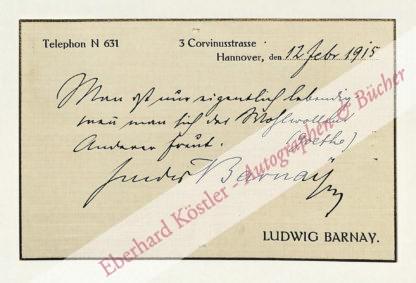 Telephon N 631
3 Corvinusstrasse
Hannover, den 12 febr 1915
Man ist nur eigentlich lebendig
wenn man sich des Wohlwollens
Anderer freut. (Goethe)
Barnay
LUDWIG BARNAY.
Eberhard Köstler - Autographen & Bücher